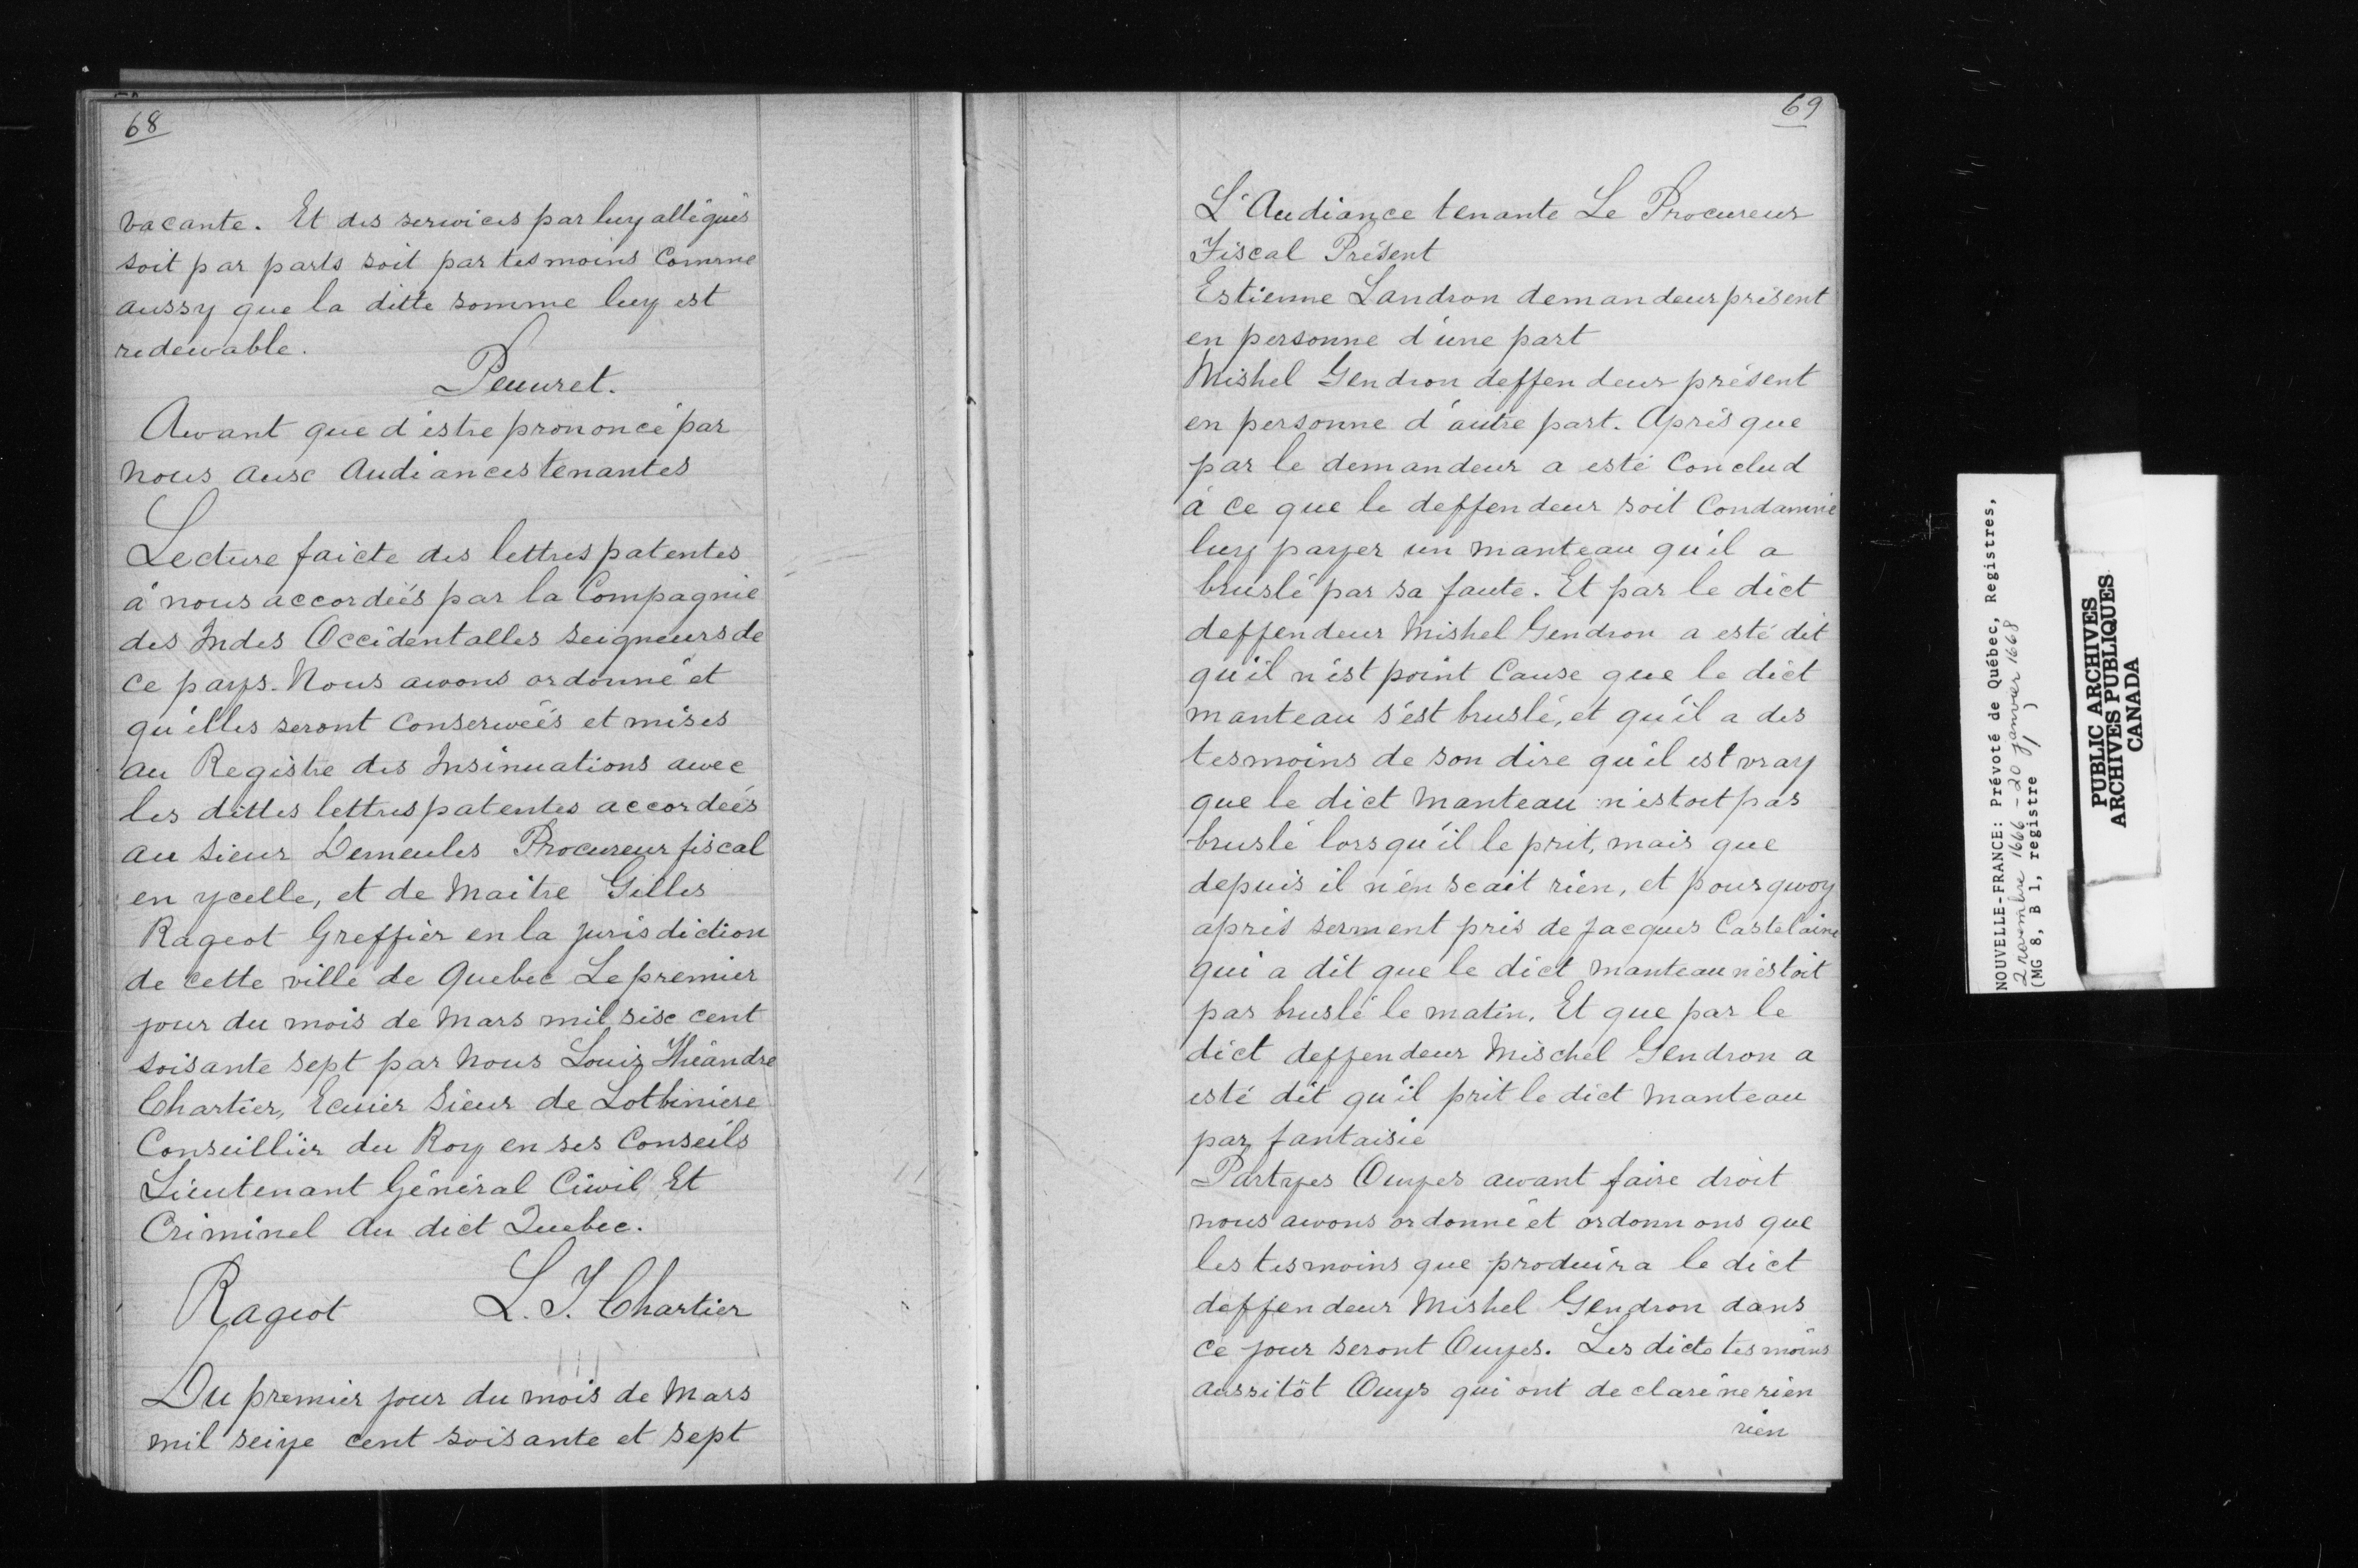 68
vacante. Et des serwices par luy allégués
soit par parts soit par tesmoins Comme
aussy que la ditte somme luy est
redewable.
Peuuret.
Awant que d'estre prononcé par
nous ausc Audiances tenantes
Lecture faicte des lettres patentes
à nous accordéés par la Compagnie
des Indes Occidentalles seigneurs de
ce pays. Nous awons ordonné et
qu'elles seront conserwéés et mises
au Registre des Insinuations awec
les dittes lettres patentes accordeés
au sieur Demeules Procureur fiscal
en ycelle, et de Maitre Gilles
Rageot Greffier en la jurisdiction
de cette ville de Quebec Le premier
jour du mois de Mars mil sisc cent
soisante sept par Nous Louis Théandre
Chartier, Ecuier Sieur de Lotbiniere
Conseillier du Roy en ses Conseils
Lieutenant Général Ciwil Et
Criminel du dict Quebec.
Rageot L. T. Chartier
Du premier jour du mois de Mars
mil seize cent soisante et sept
69
L'Audiance tenante Le Procureur
Fiscal Présent
Estienne Landron demandeur présent
en personne d'une part
Mishel Gendron deffendeur présent
en personne d'autre part. Après que
par le demandeur a esté Conclud
à ce que le deffendeur soit Condamné
luy payer un manteau qu'il a
bruslé par sa faute. Et par le dict
deffendeur Mishel Gendron a esté dit
qu'il n'est point Cause que le dict
manteau s'est bruslé, et qu'il a des
tesmoins de son dire qu'il est vray
que le dict Manteau n'estoit pas
bruslé lorsqu'il le prit, mais que
depuis il n'en scait rien, et pourquoy
après serment pris de Jacques Castelaine
qui a dit que le dict Manteau n'estoit
pas bruslé le matin. Et que par le
dict deffendeur Mischel Gendron a
esté dit qu'il prit le dict Manteau
par fantaisie
Partyes Ouyes awant faire droit
nous awons ordonné et ordonnons que
les tesmoins que produira le dict
deffendeur Mishel Gendron dans
ce jour seront Ouyes. Les dicts tesmoins
aussitôt Ouys qui ont declaré ne rien
rien
NOUVELLE-FRANCE: Prévoté de Québec, Registres,
2 novembre 1666 - 20 janvier 1668
(MG 8, B 1, registre 1)
PUBLIC ARCHIVES
ARCHIVES PUBLIQUES
CANADA